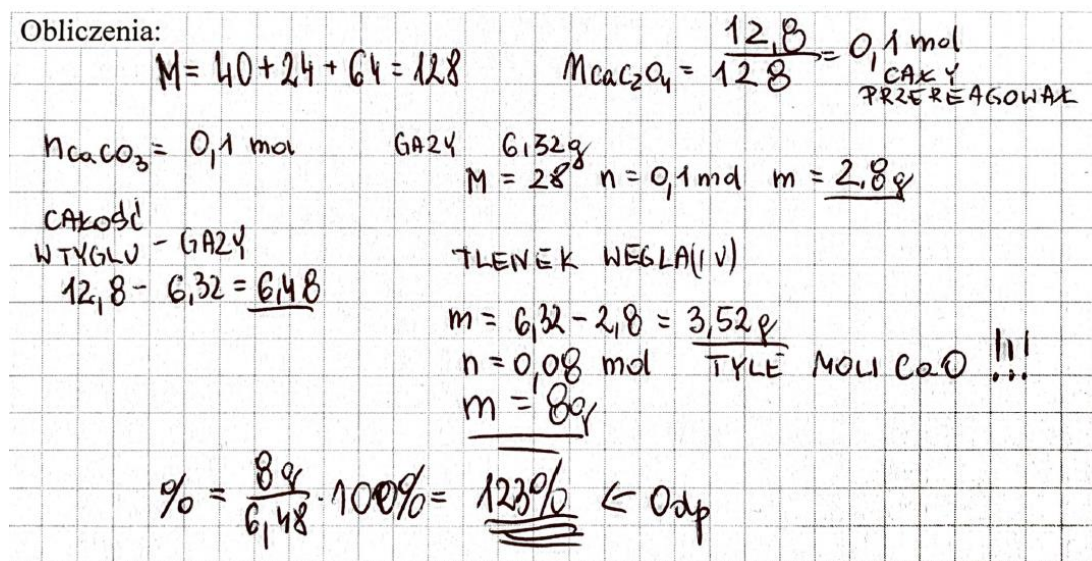 Obliczenia:
M = 40 + 24 + 64 = 128
nCaC2O4 = 12,8 / 128 = 0,1 mol
CAŁY
PRZEREAGOWAŁ
nCaCO3 = 0,1 mol
GAZY 6,32g
M = 28 n = 0,1 mol m = 2,8g
CAŁOŚĆ
W TYGLU - GAZY
12,8 - 6,32 = 6,48
TLENEK WEGLA(IV)
m = 6,32 - 2,8 = 3,52g
n = 0,08 mol TYLE MOLI CaO !!!
m = 8g
% = 8g / 6,48 · 100% = 123% ← Odp